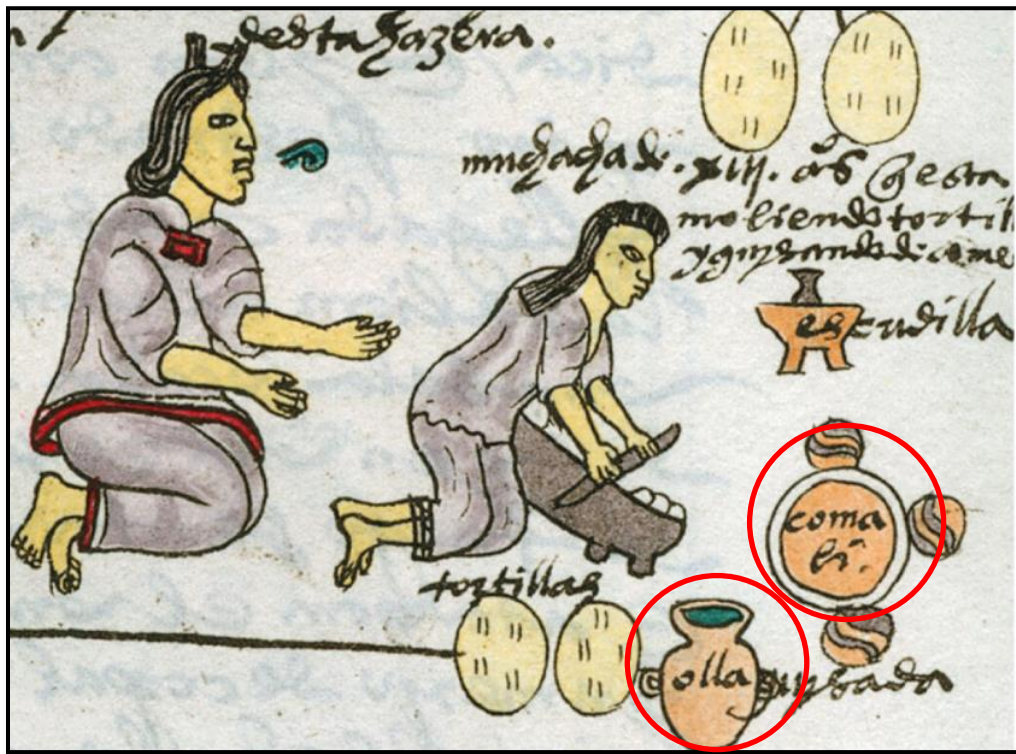 desta hazera.
muchacha de. xiij. años q̃ esta
moliendo tortill
y guysando de come
escudilla
comali.
tortillas
olla